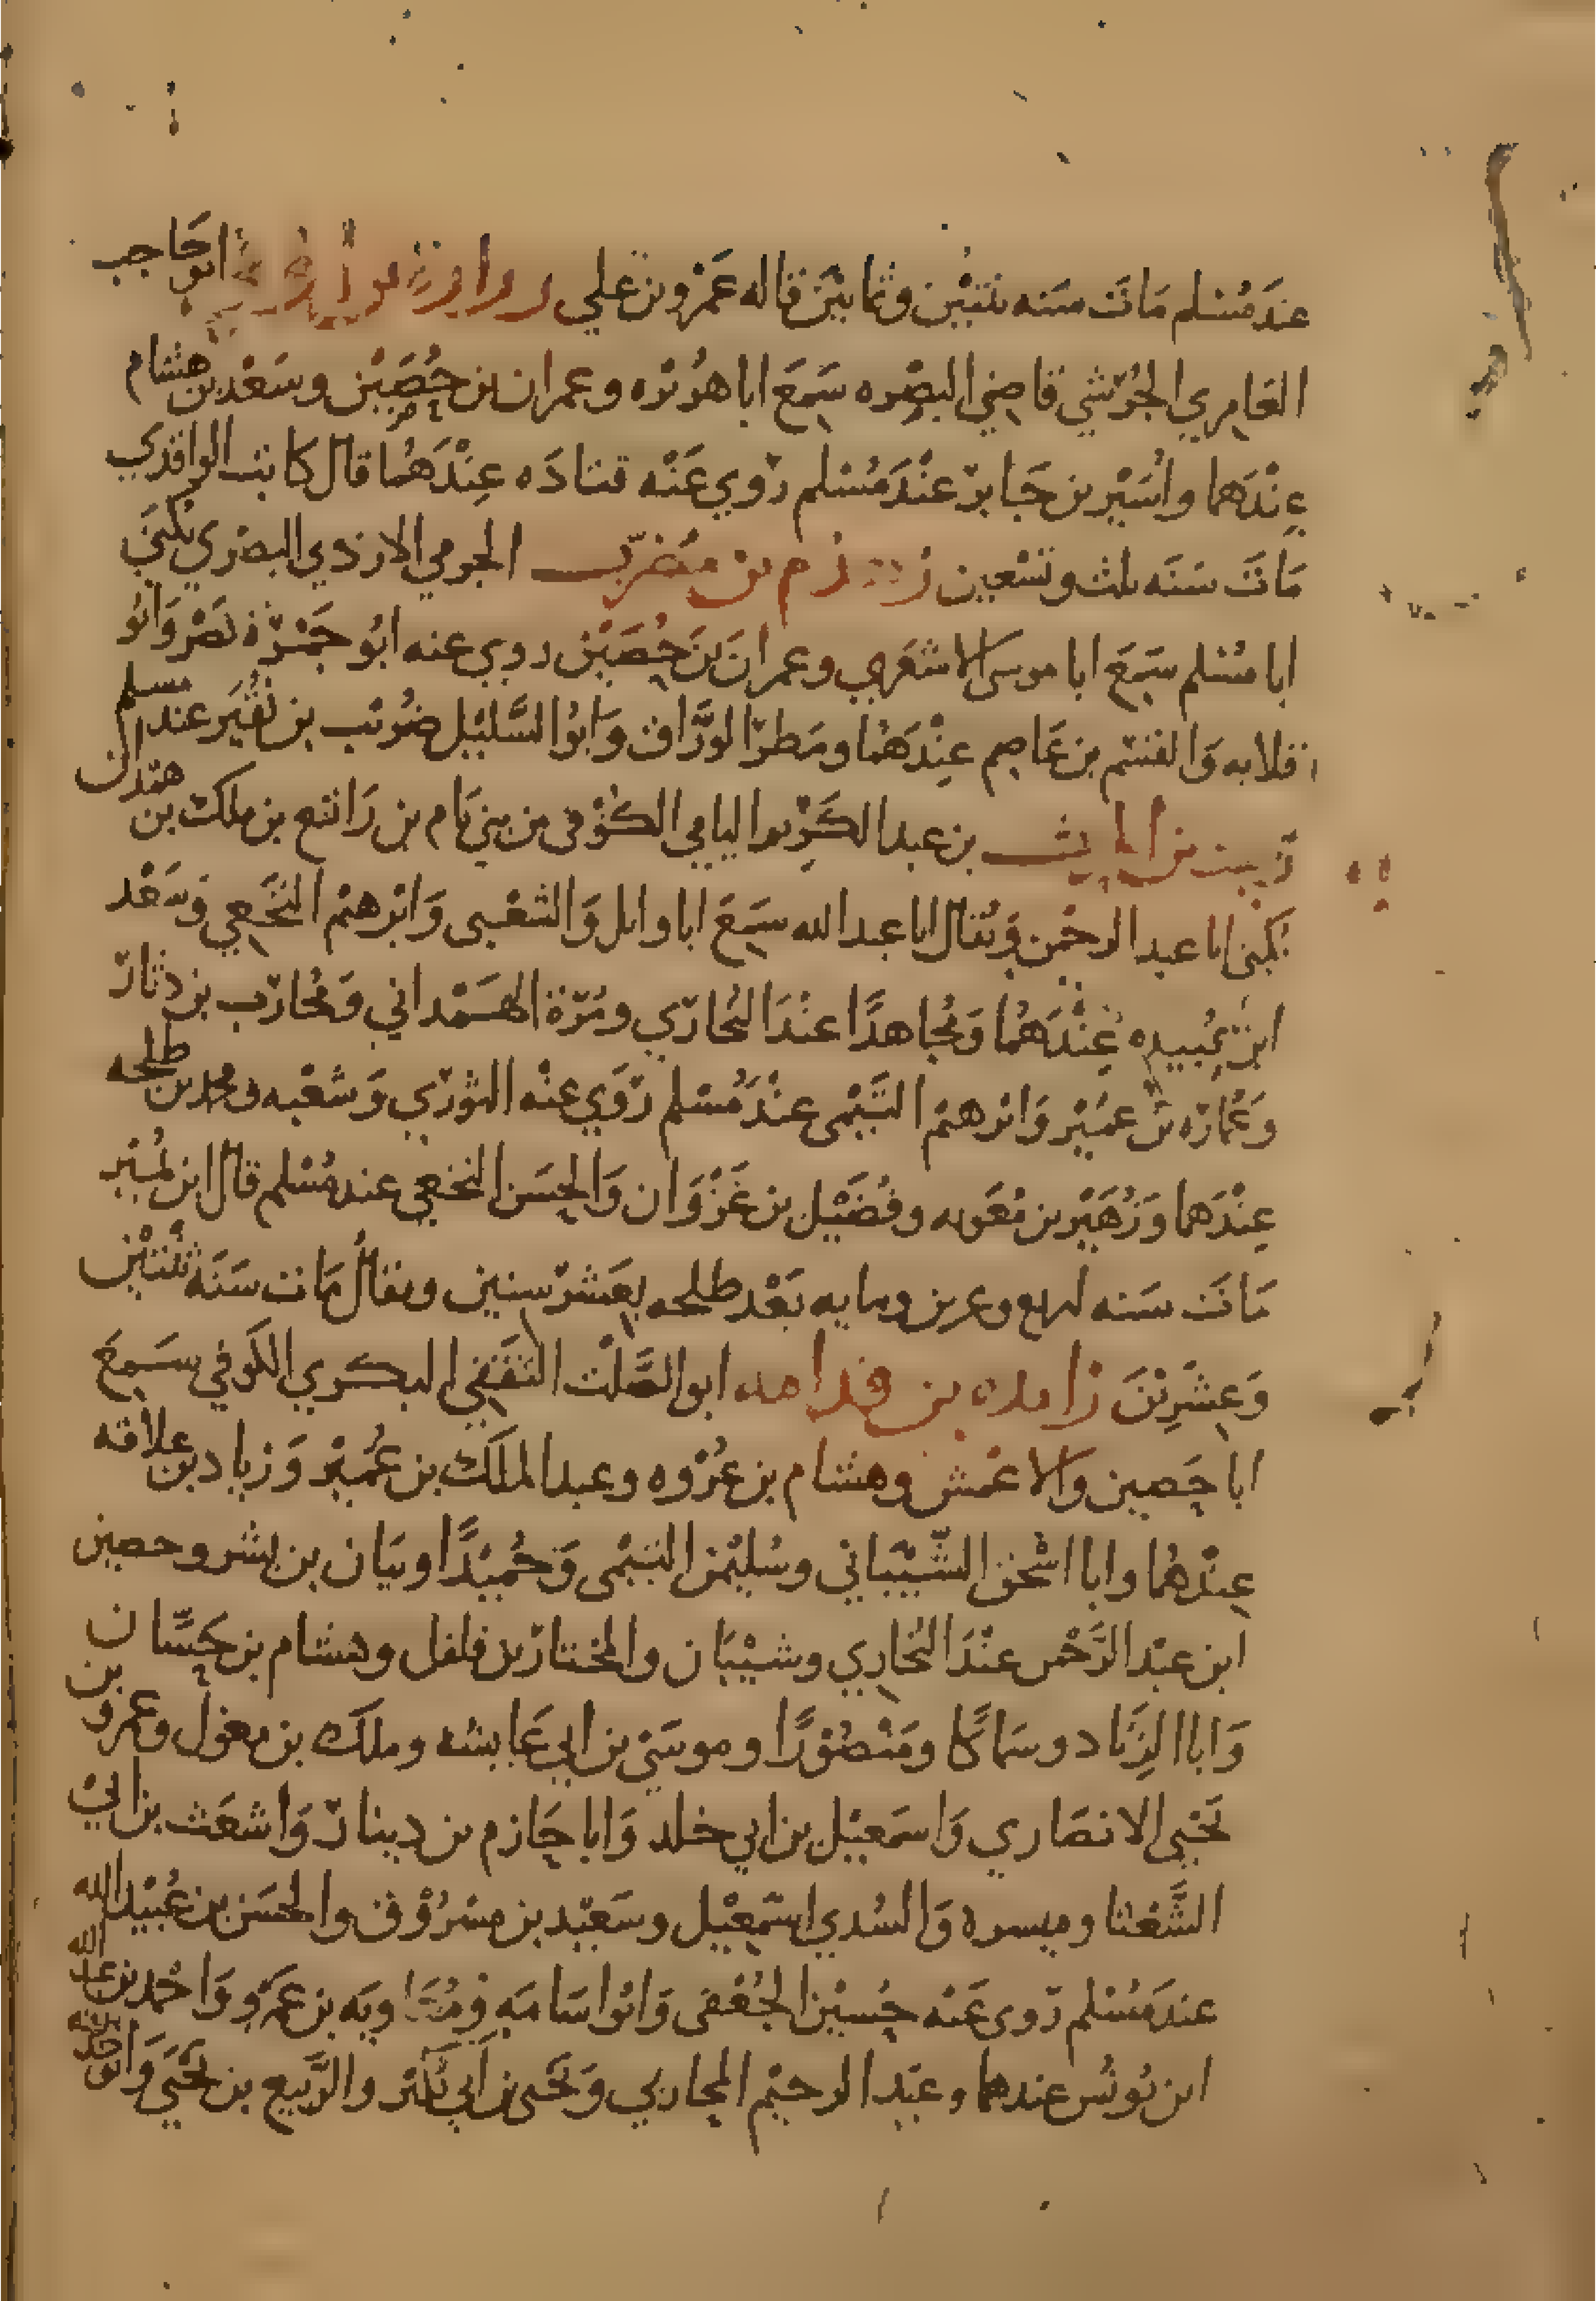 عند مسلم مات سنه ثنتين وثمانين قاله عمرو بن علي زراره بن ابو حاجب
العامري الحرشي قاضي البصره سمع ابا هريره وعمران بن حصين وسعد بن هشام
عندهما واسير بن جابر عند مسلم روي عنه قتاده عندهما قال كاتب الواقدي
مات سنه ثلث وتسعين زهدم بن مضرب الجرمي الازدي البصري يكنى
ابا مسلم سمع ابا موسى الاشعري وعمران بن حصين روي عنه ابو جمرة نصر وابو
قلابه والقسم بن عاصم عندهما ومطر الوراق وابو السليل ضريب بن نقير عند مسلم
زبيد بن الحارث بن عبد الكريم اليامي الكوفي من بني يام بن رافع بن ملك بن همدان
يكنى ابا عبد الرحمن ويقال ابا عبد الله سمع ابا وايل والشعبي وابرهيم النخعي وسعد
ابن عبيده عندهما ومجاهدا عند البخاري ومرة الهمداني ومحارب بن دثار
وعماره بن عمير وابرهيم التيمي عند مسلم روي عنه الثوري وشعبه ومحمد بن طلحه
عندهما وزهير بن معويه وفضيل بن غزوان والحسن النخعي عند مسلم قال ابن نمير
مات سنه اربع وعشرين ومايه بعد طلحه بعشر سنين ويقال مات سنه ثنتين
وعشرين زايده بن قدامه ابو الصلت الثقفي البكري الكوفي سمع
ابا حصين والاعمش وهشام بن عروه وعبد الملك بن عمير وزياد بن علاقه
عندهما وابا اسحق الشيباني وسليمن التيمي وحميدا وبيان بن بشر وحصين
ابن عبد الرحمن عند البخاري وشيبان والمختار بن فلفل وهشام بن حسان
وابا الزناد وسماكا ومنصورا وموسى بن ابي عايشه وملك بن مغول وعمرو بن
يحيى الانصاري واسمعيل بن ابي خلد وابا حازم بن دينار واشعث بن ابي
الشعثا وميسره والسدي اسمعيل وسعيد بن مسروق والحسن بن عبيد الله
عند مسلم روى عنه حسين الجعفي وابو اسامه ومعاويه بن عمرو واحمد بن عبد الله
ابن يونس عندهما وعبد الرحيم المحاربي ويحيى بن ابي بكير والربيع بن يحيى وابو حذيفه